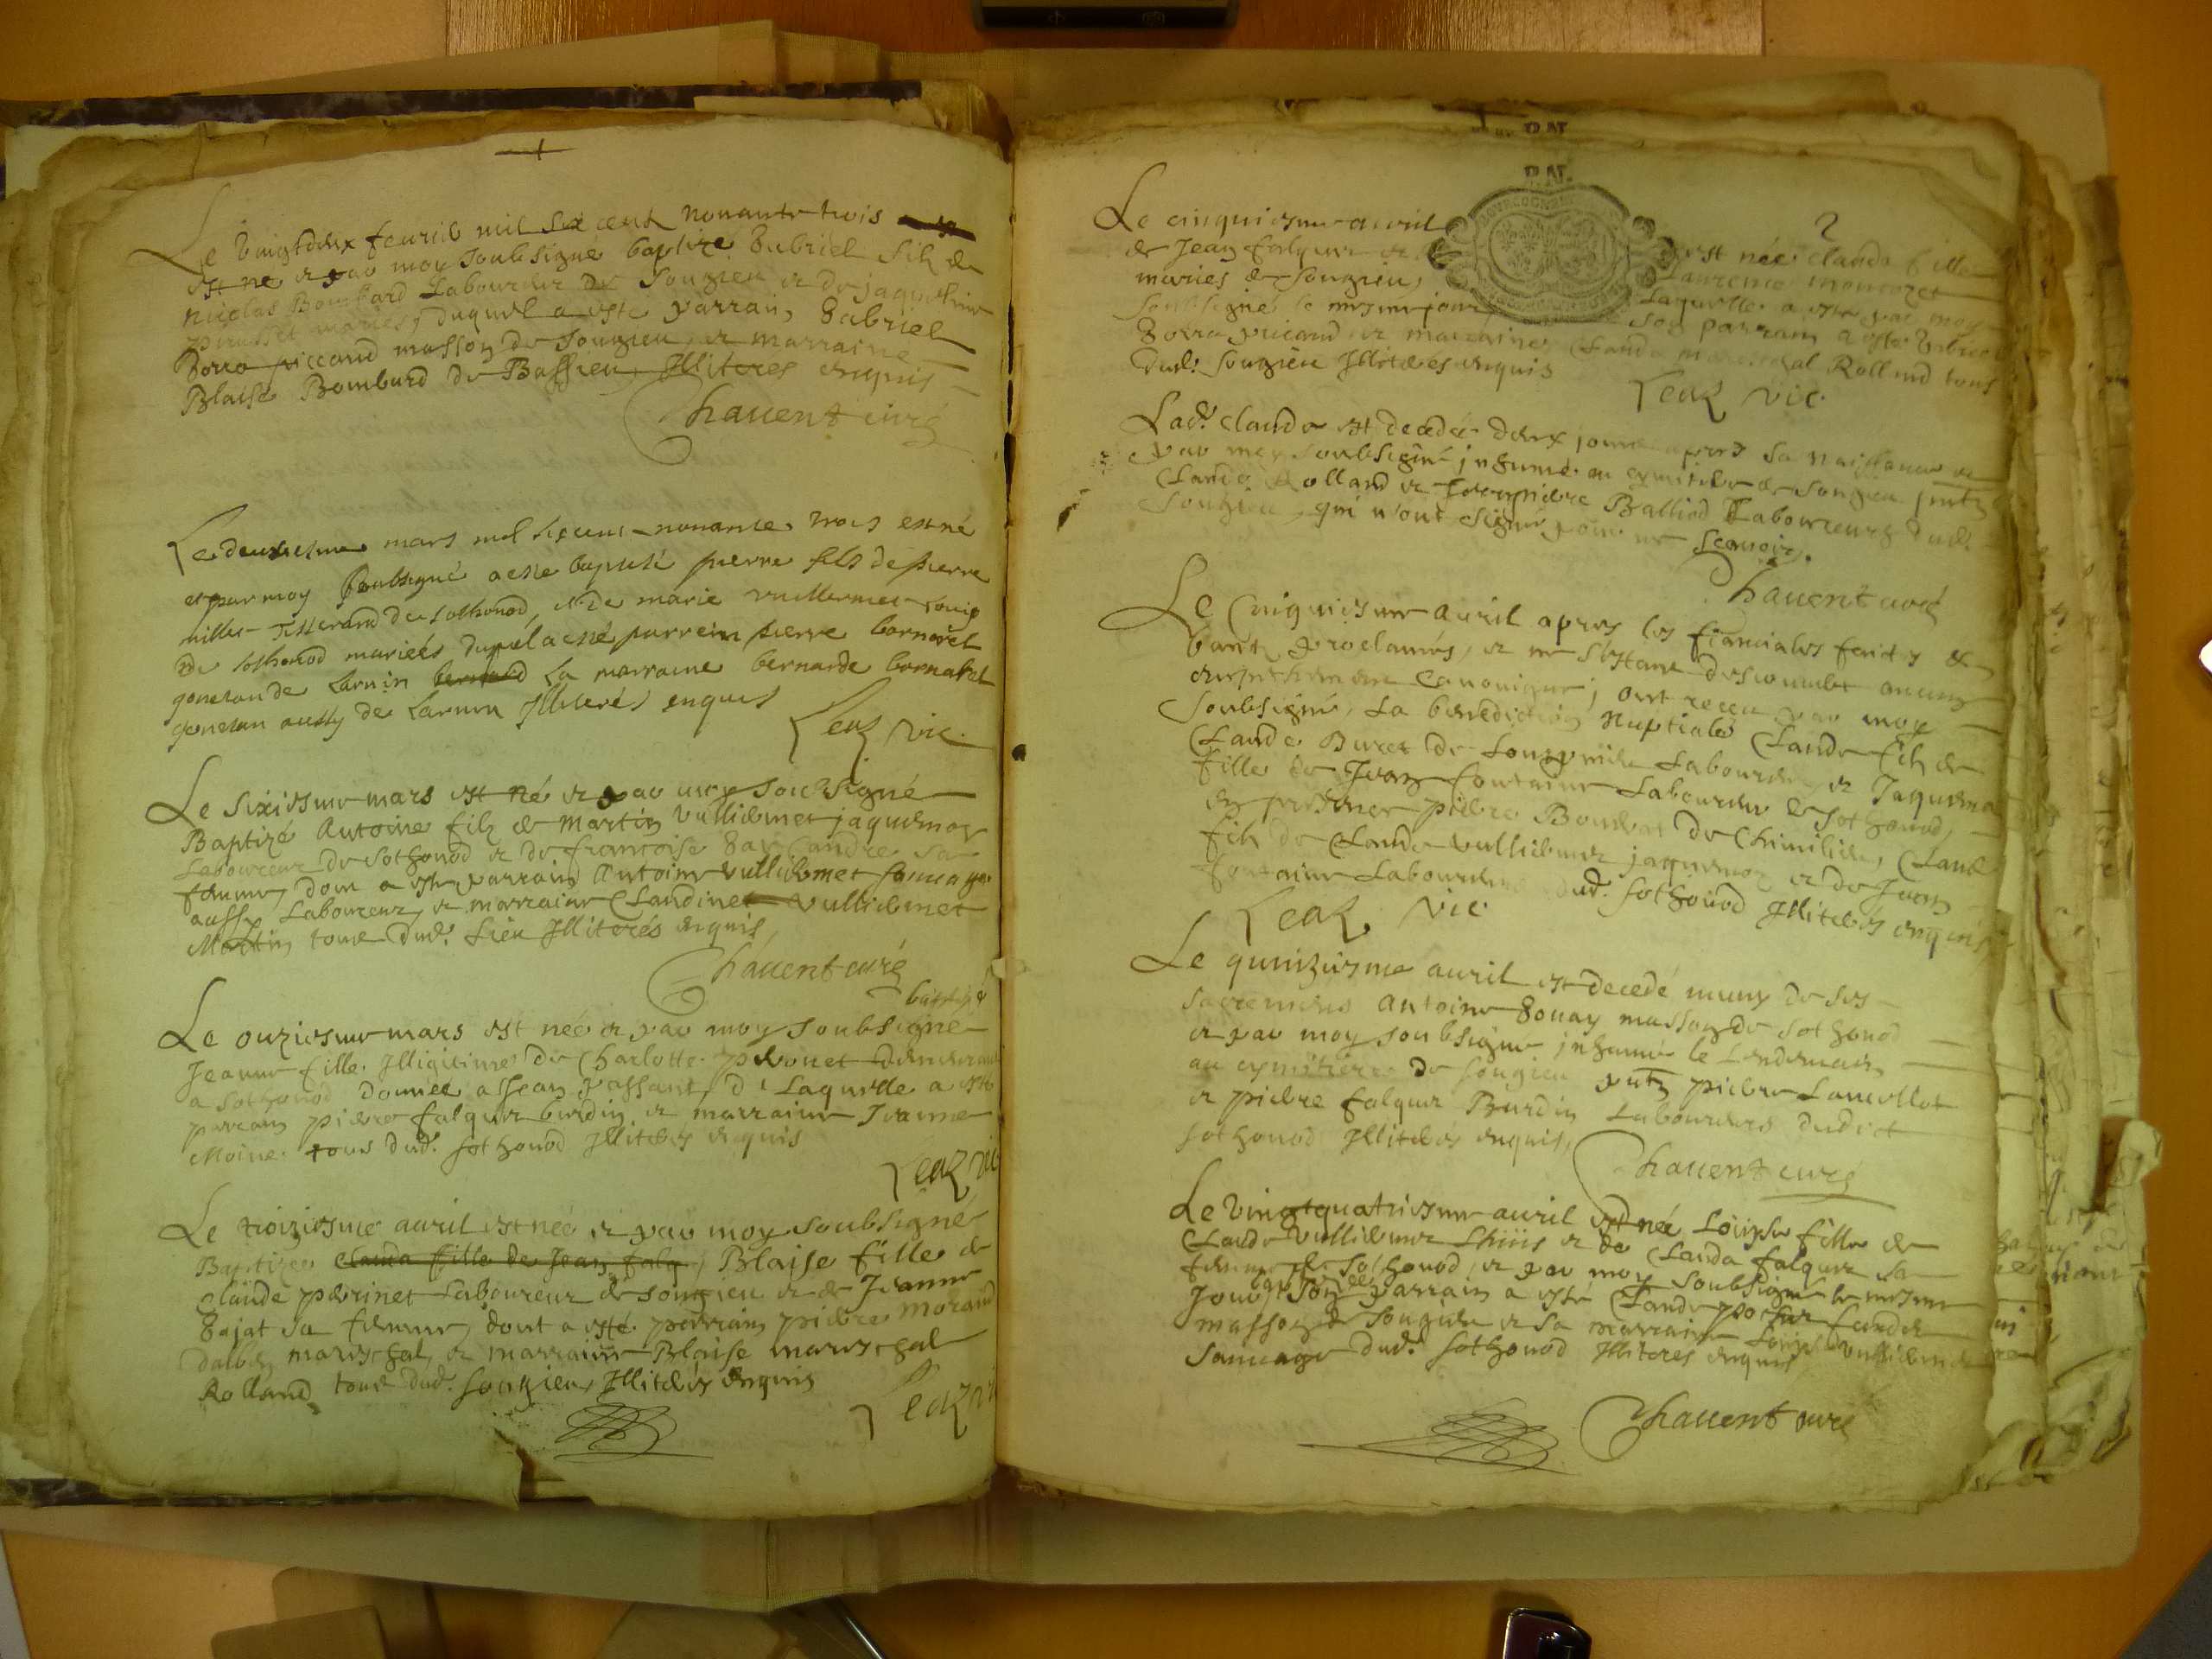 Le vingtdeux feurier mil six cent nonante trois
est né et par moy soubsigne baptizé Gabriel filz de
nicolas Bombard Laboureur de Songieu et de jaquemine
mariés, duquel a esté parrain Gabriel
Borra piccand masson de Songieu, et marraine
Blaise Bombard de Bassieu, Illiterés enquis
Chauent curé
Le deuxiesme mars mil six cent nonante trois est né
et par moy soubsigné a esté baptisé pierre fils de pierre
millet Tisserand de sothonod, et de marie vuillermet
de sothonod mariés duquel a esté parrein pierre bornarel
gonetan de Larnin bernard La marraine bernarde bornarel
gonetan aussy de Larnin Illiterés enquis
Leaz vic.
Le sixiesme mars est né et par moy soubsigné
Baptizé Antoine filz de Martin Vulliermet jaquemoz
Laboureur de sothonod et de francoise sa
femme, dont a esté parrain Antoine vulliermet sauuage
aussy Laboureur, et marraine Claudine vulliermet
Martin tous dud. Lieu Illiterés enquis,
Chauent curé
baptizé
Le onziesme mars est née et par moy soubsigné
Jeanne fille Illigitime de Charlotte peronet demeurant
a Sothonod donnée a Jean passant, de Laquelle a esté
parrain pierre falquet burdin et marraine Jeanne
Moine tous dud. sothonod Illiterés enquis
Leaz vic
Le troiziesme auril est née et par moy soubsigné
Baptizee clauda fille de Jean falq, Blaise fille de
Claude perrinet Laboureur de songieu et de Jeanne
Gojat sa femme, dont a esté parrain pierre morand
dalbey mareschal, et marraine Blaise mareschal
Rolland tous dud. songieu Illiterés enquis
Leaz vi
P.N.
P.N.
2
Le cinquiesme auril est née clauda fille
de Jean falquet et Laurence moncozet
mariés de songieu, Laquelle a esté par moy
soubsigné le mesme jour son parrain a esté Gabriel
Borra piccand et marraine Clauda mareschal Rolland tous
dud. songieu Illiterés enquis
Leaz vic.
Lad. clauda est decedée deux jours apres sa naissance et
par moy soubsigné inhumé au cymitiere de songieu pntz
Claude Rolland et Balliod Laboureurs dud.
Songieu, qui n'ont signé pour ne scauoir.
Chauent curé
Le Cinquiesme auril apres les fiancialles faites &
bantz proclamés, et ne s'estant descouuert aucun
empechement Canonique, ont receu par moy
soubsigné, La benediction Nuptiale Claude filz de
Claude Buret de Laboureur, et Jaquema
fille de Jean fontaine Laboureur de sothonod,
en presence pierre de Chimilieu, Claude
filz de Claude vulliermet jaquemoz et de Jean
fontaine Laboureurs dud. sothonod Illiterés enquis
Leaz vic
Le quinziesme auril est decedé muny de ses
sacremens Antoine Gonay masson de sothonod
et par moy soubsigné inhumé le lendemain
au cymitiere de songieu pntz pierre Lancellot
et pierre falquet Burdin Laboureurs dudict
sothonod Illiterés enquis,
Chauent curé
Le vingtquatriesme auril est née Louyse fille de
Claude vulliermet et de Clauda falquet sa
femme de sothonod, et par moy soubsigné le mesme
Jour baptizée son parrain a esté Claude
masson de songieu et sa marraine Louyse vulliermet
sauuage dud. sothonod Illiteres enquis
Chauent curé